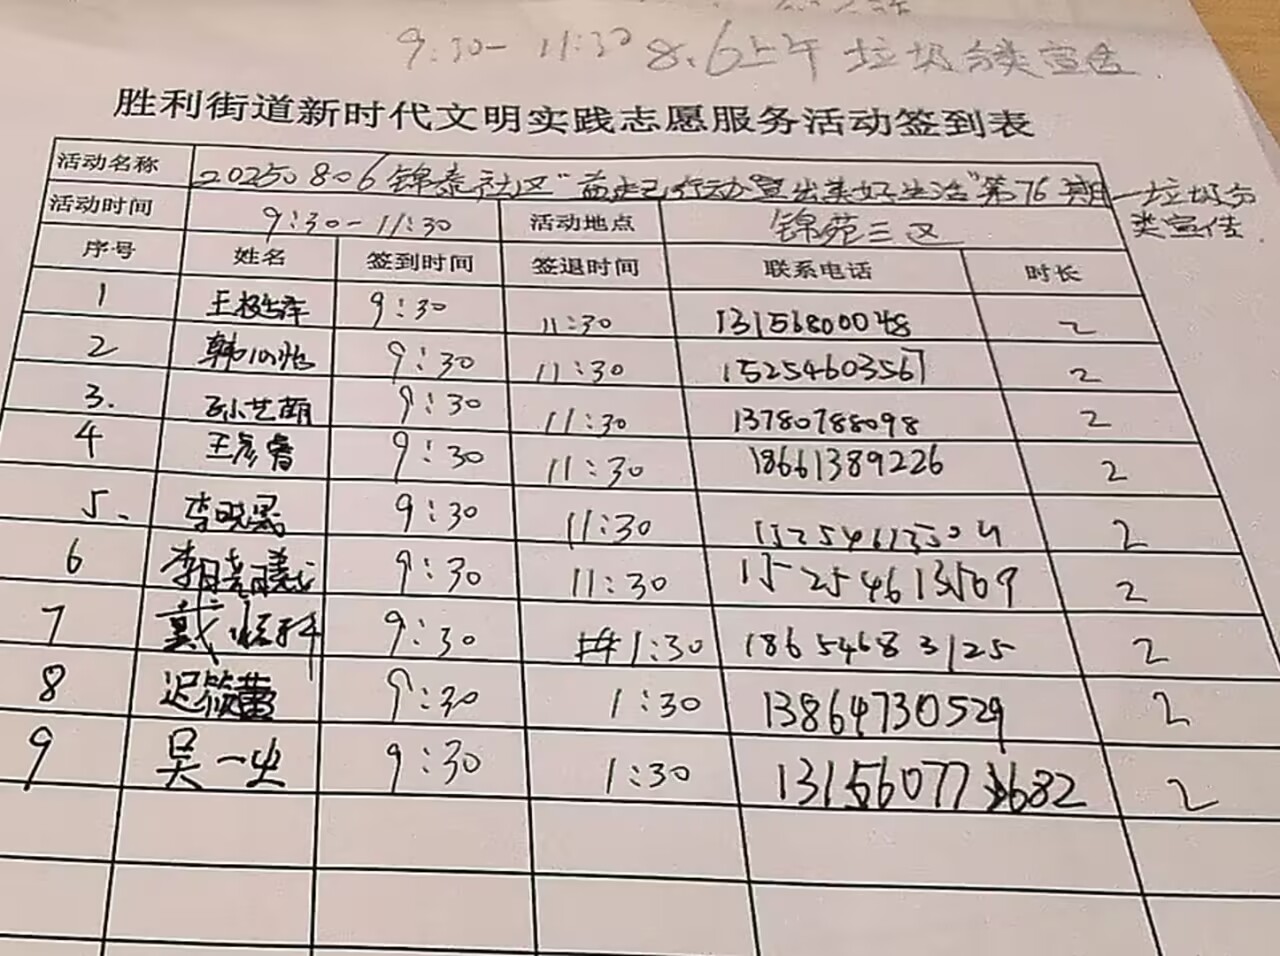 9:30-11:30 8.6上午 垃圾分类宣传
胜利街道新时代文明实践志愿服务活动签到表
活动名称 20250806锦泰社区"益起行动 宣出美好生活"第76期—垃圾分类宣传
活动时间 9:30-11:30 活动地点 锦苑三区
序号 姓名 签到时间 签退时间 联系电话 时长
1 9:30 11:30 13156800048 2
2 9:30 11:30 15254603567 2
3. 孙艺萌 9:30 11:30 13780788098 2
4 王彦睿 9:30 11:30 18661389226 2
5. 李晓 9:30 11:30 2
6 9:30 11:30 15254613509 2
7 戴 9:30 1:30 18654683125 2
8 迟筱蕾 9:30 1:30 13864730529 2
9 吴一 9:30 1:30 2